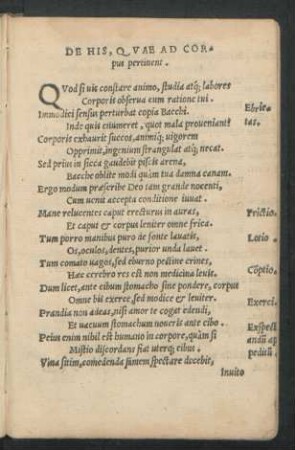 DE HIS, QVAE AD COR-
pus pertinent.
QVod si uis constare animo, studia atq; labores
Corporis obserua cum ratione tui.
Immodici sensus perturbat copia Bacchi. Ebrie-
Inde quis enumeret, quot mala proueniant? tas.
Corporis exhaurit succos, animiq; uigorem
Opprimit, ingenium strangulat atq; necat.
Sed prius in sicca gaudebit piscis arena,
Bacche oblite modi quàm tua damna canam.
Ergo modum præscribe Deo tam grande nocenti,
Cum uenit accepta conditione iuuat.
Mane relucentes caput erecturus in auras, Frictio.
Et caput & corpus leniter omne frica.
Tum porro manibus puro de fonte lauatis, Lotio.
Os, oculos, dentes, purior unda lauet.
Tum comato uagos, sed eburno pectine crines, Cōptio.
Hac cerebro res est non medicina leuis.
Dum licet, ante cibum stomacho sine pondere, corpus
Omne bis exerce, sed modice & leuiter. Exerci.
Prandia non adeas, nisi amor te cogat edendi,
Et uacuum stomachum noueris ante cibo. Exspect
Peius enim nihil est humano in corpore, quàm si andū ap
Mistio discordans fiat uterq; cibus. petitū.
Vina sitim, comedenda famem spectare decebit,
Inuito